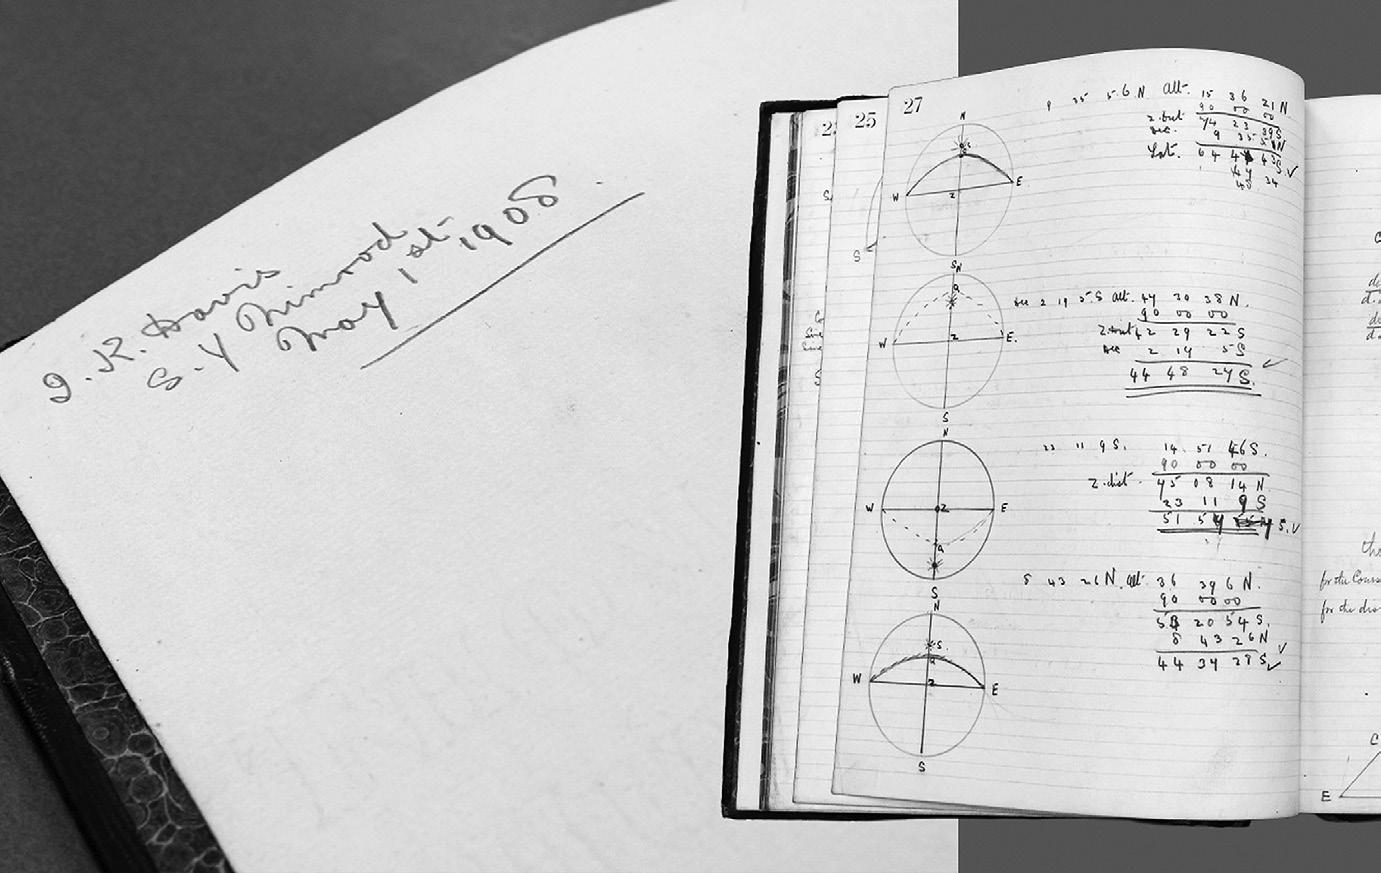 J. K. Davis
S. Y Nimrod
May 1st 1908.
25
27
9 35 5.6 N alt. 15 36 21 N
90 00 00
Z. dist 74 23 39 S.
dec. 9 35
Lat. 64
N
S
W
E
Z
S
N
W
E
Z
S
dec 2 19 5 S alt. 47 30 38 N.
90 00 00
Z. dist 42 29 22 S
dec 2 19 5 S
44 48 27 S.
N
W
E
Z
S
23 11 9 S. 14 51 46 S.
90 00 00
Z. dist. 75 08 14 N
23 11 9 S
51 57 S.
N
W
E
Z
S
8 43 26 N. alt. 36 39 6 N.
90 00 00
53 20 54 S.
8 43 26 N
44 37 28 S
for the Course
for the
C
E